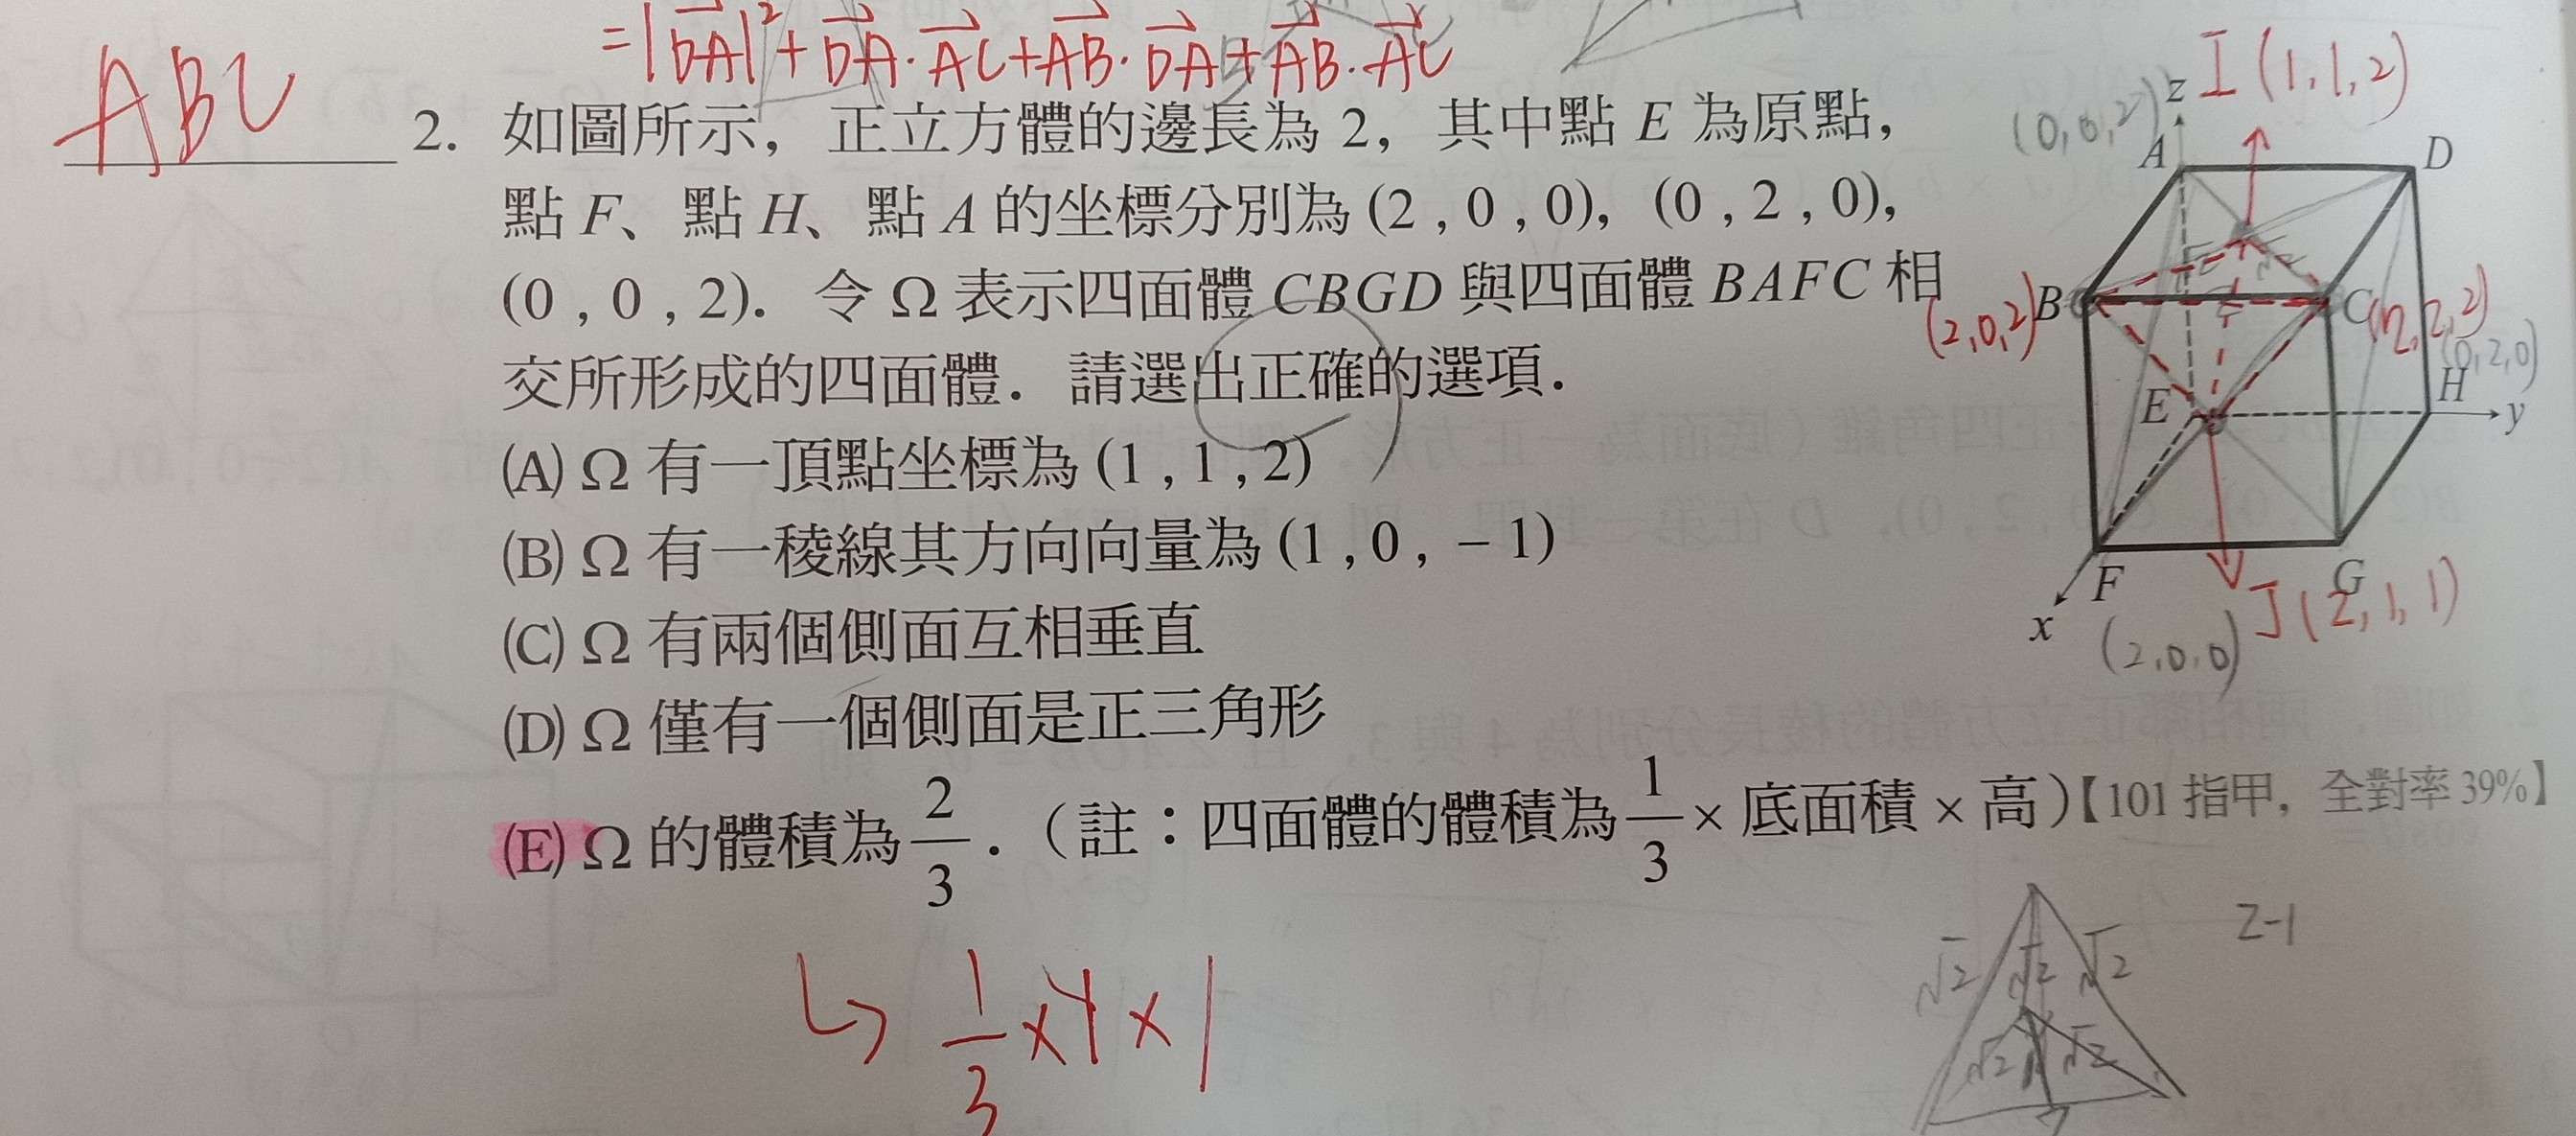 =|DA|²+DA·AC+AB·DA+AB·AC
ABC
2. 如圖所示，正立方體的邊長為 2，其中點 E 為原點，
點 F、點 H、點 A 的坐標分別為 (2 , 0 , 0)，(0 , 2 , 0)，
(0 , 0 , 2)．令 Ω 表示四面體 CBGD 與四面體 BAFC 相
交所形成的四面體．請選出正確的選項．
(A) Ω 有一頂點坐標為 (1 , 1 , 2)
(B) Ω 有一稜線其方向向量為 (1 , 0 , −1)
(C) Ω 有兩個側面互相垂直
(D) Ω 僅有一個側面是正三角形
(E) Ω 的體積為 2/3．（註：四面體的體積為 1/3 × 底面積 × 高）【101 指甲，全對率 39%】
↳ 1/3 × 4 × 1
I (1,1,2)
(0,0,2) z
A D
(2,0,2) B C (2,2,2)
(0,2,0)
E H y
F G
x (2,0,0) J (2,1,1)
2-1
√2 √2 √2
√2 √2